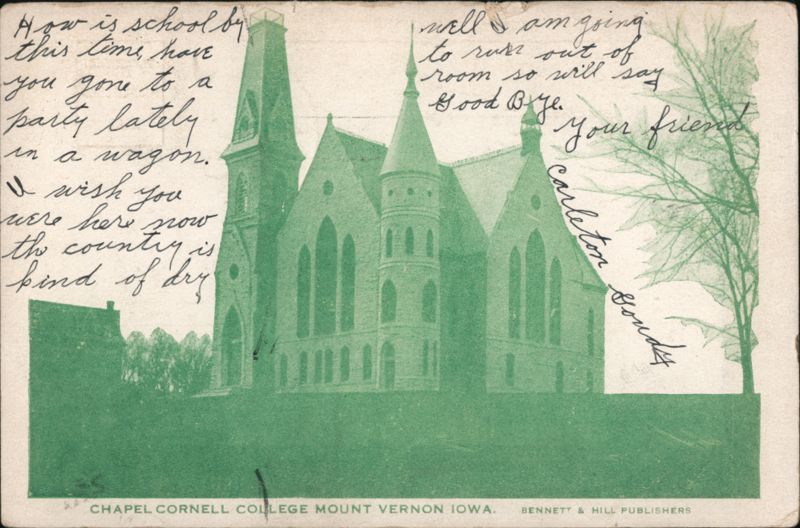 How is school by
this time, have
you gone to a
party lately
in a wagon.
I wish you
were here now
the country is
kind of dry
well I am going
to run out of
room so will say
Good Bye.
Your friend
Carleton
CHAPEL CORNELL COLLEGE MOUNT VERNON IOWA.
BENNETT & HILL PUBLISHERS